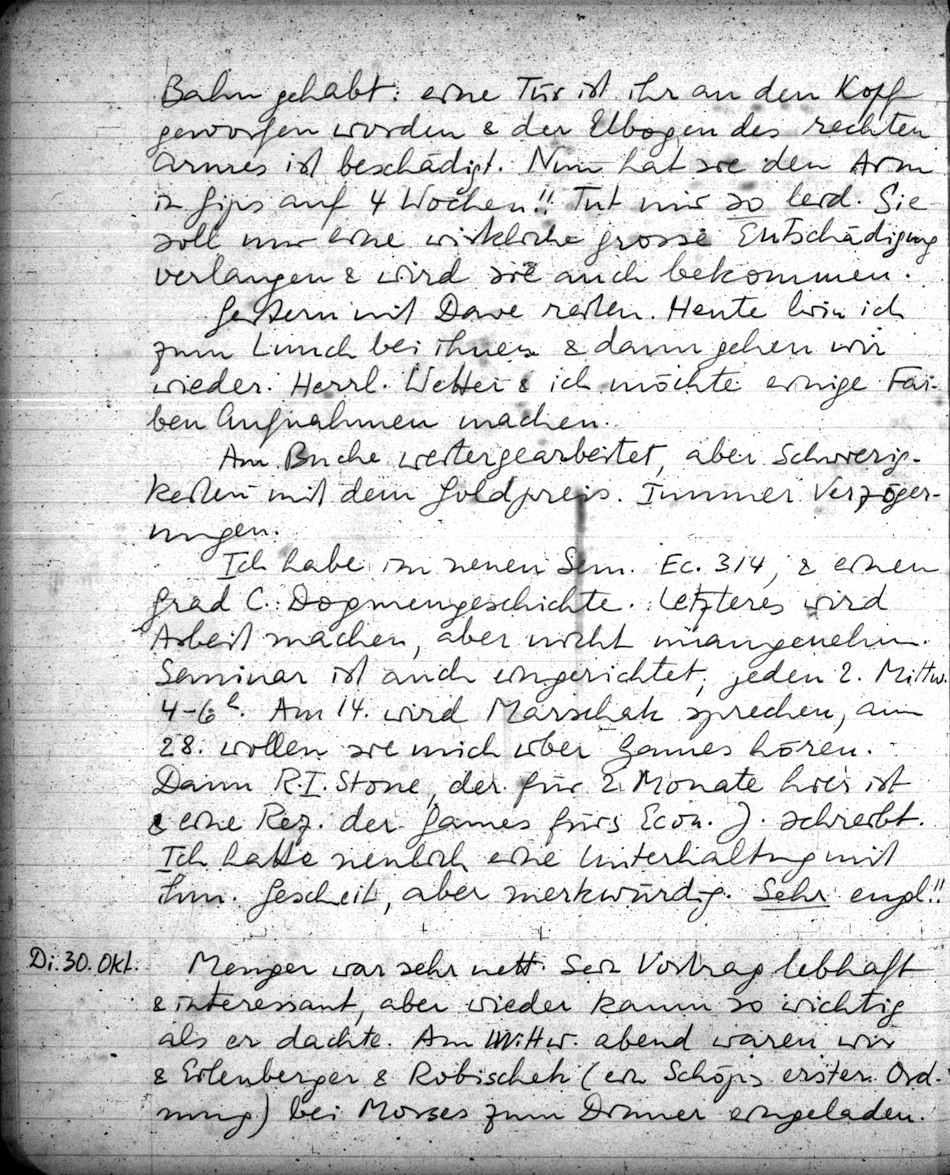 Bahn gehabt: eine Tür ist ihr an den Kopf
geworfen worden & der Elbogen des rechten
Armes ist beschädigt. Nun hat sie den Arm
in Gips auf 4 Wochen!! Tut mir so leid. Sie
soll nur eine wirkliche grosse Entschädigung
verlangen & wird sie auch bekommen.
Gestern mit Dave reiten. Heute bin ich
zum Lunch bei ihnen & dann gehen wir
wieder. Herrl. Wetter & ich möchte einige Far-
ben Aufnahmen machen.
Am Buche weitergearbeitet, aber Schwierig-
keiten mit dem Goldpreis. Immer Verzöger-
ungen.
Ich habe im neuen Sem. Ec. 314, & einen
Grad C.: Dogmengeschichte. Letzteres wird
Arbeit machen, aber nicht unangenehm.
Seminar ist auch eingerichtet, jeden 2. Mittw.
4-6h. Am 14. wird Marschak sprechen, am
28. wollen sie mich über Games hören.
Dann R.I. Stone, der für 2 Monate hier ist
& eine Rez. der Games fürs Econ. J. schreibt.
Ich hatte neulich eine Unterhaltung mit
ihm. Gescheit, aber merkwürdig. Sehr engl!!
Di. 30. Okt. Menger war sehr nett. Sein Vortrag lebhaft
& interessant, aber wieder kaum so wichtig
als er dachte. Am Mittw. abend waren wir
& Erlenberger & Robischek (ein Schöps erster Ord-
nung) bei Morses zum Dinner eingeladen.